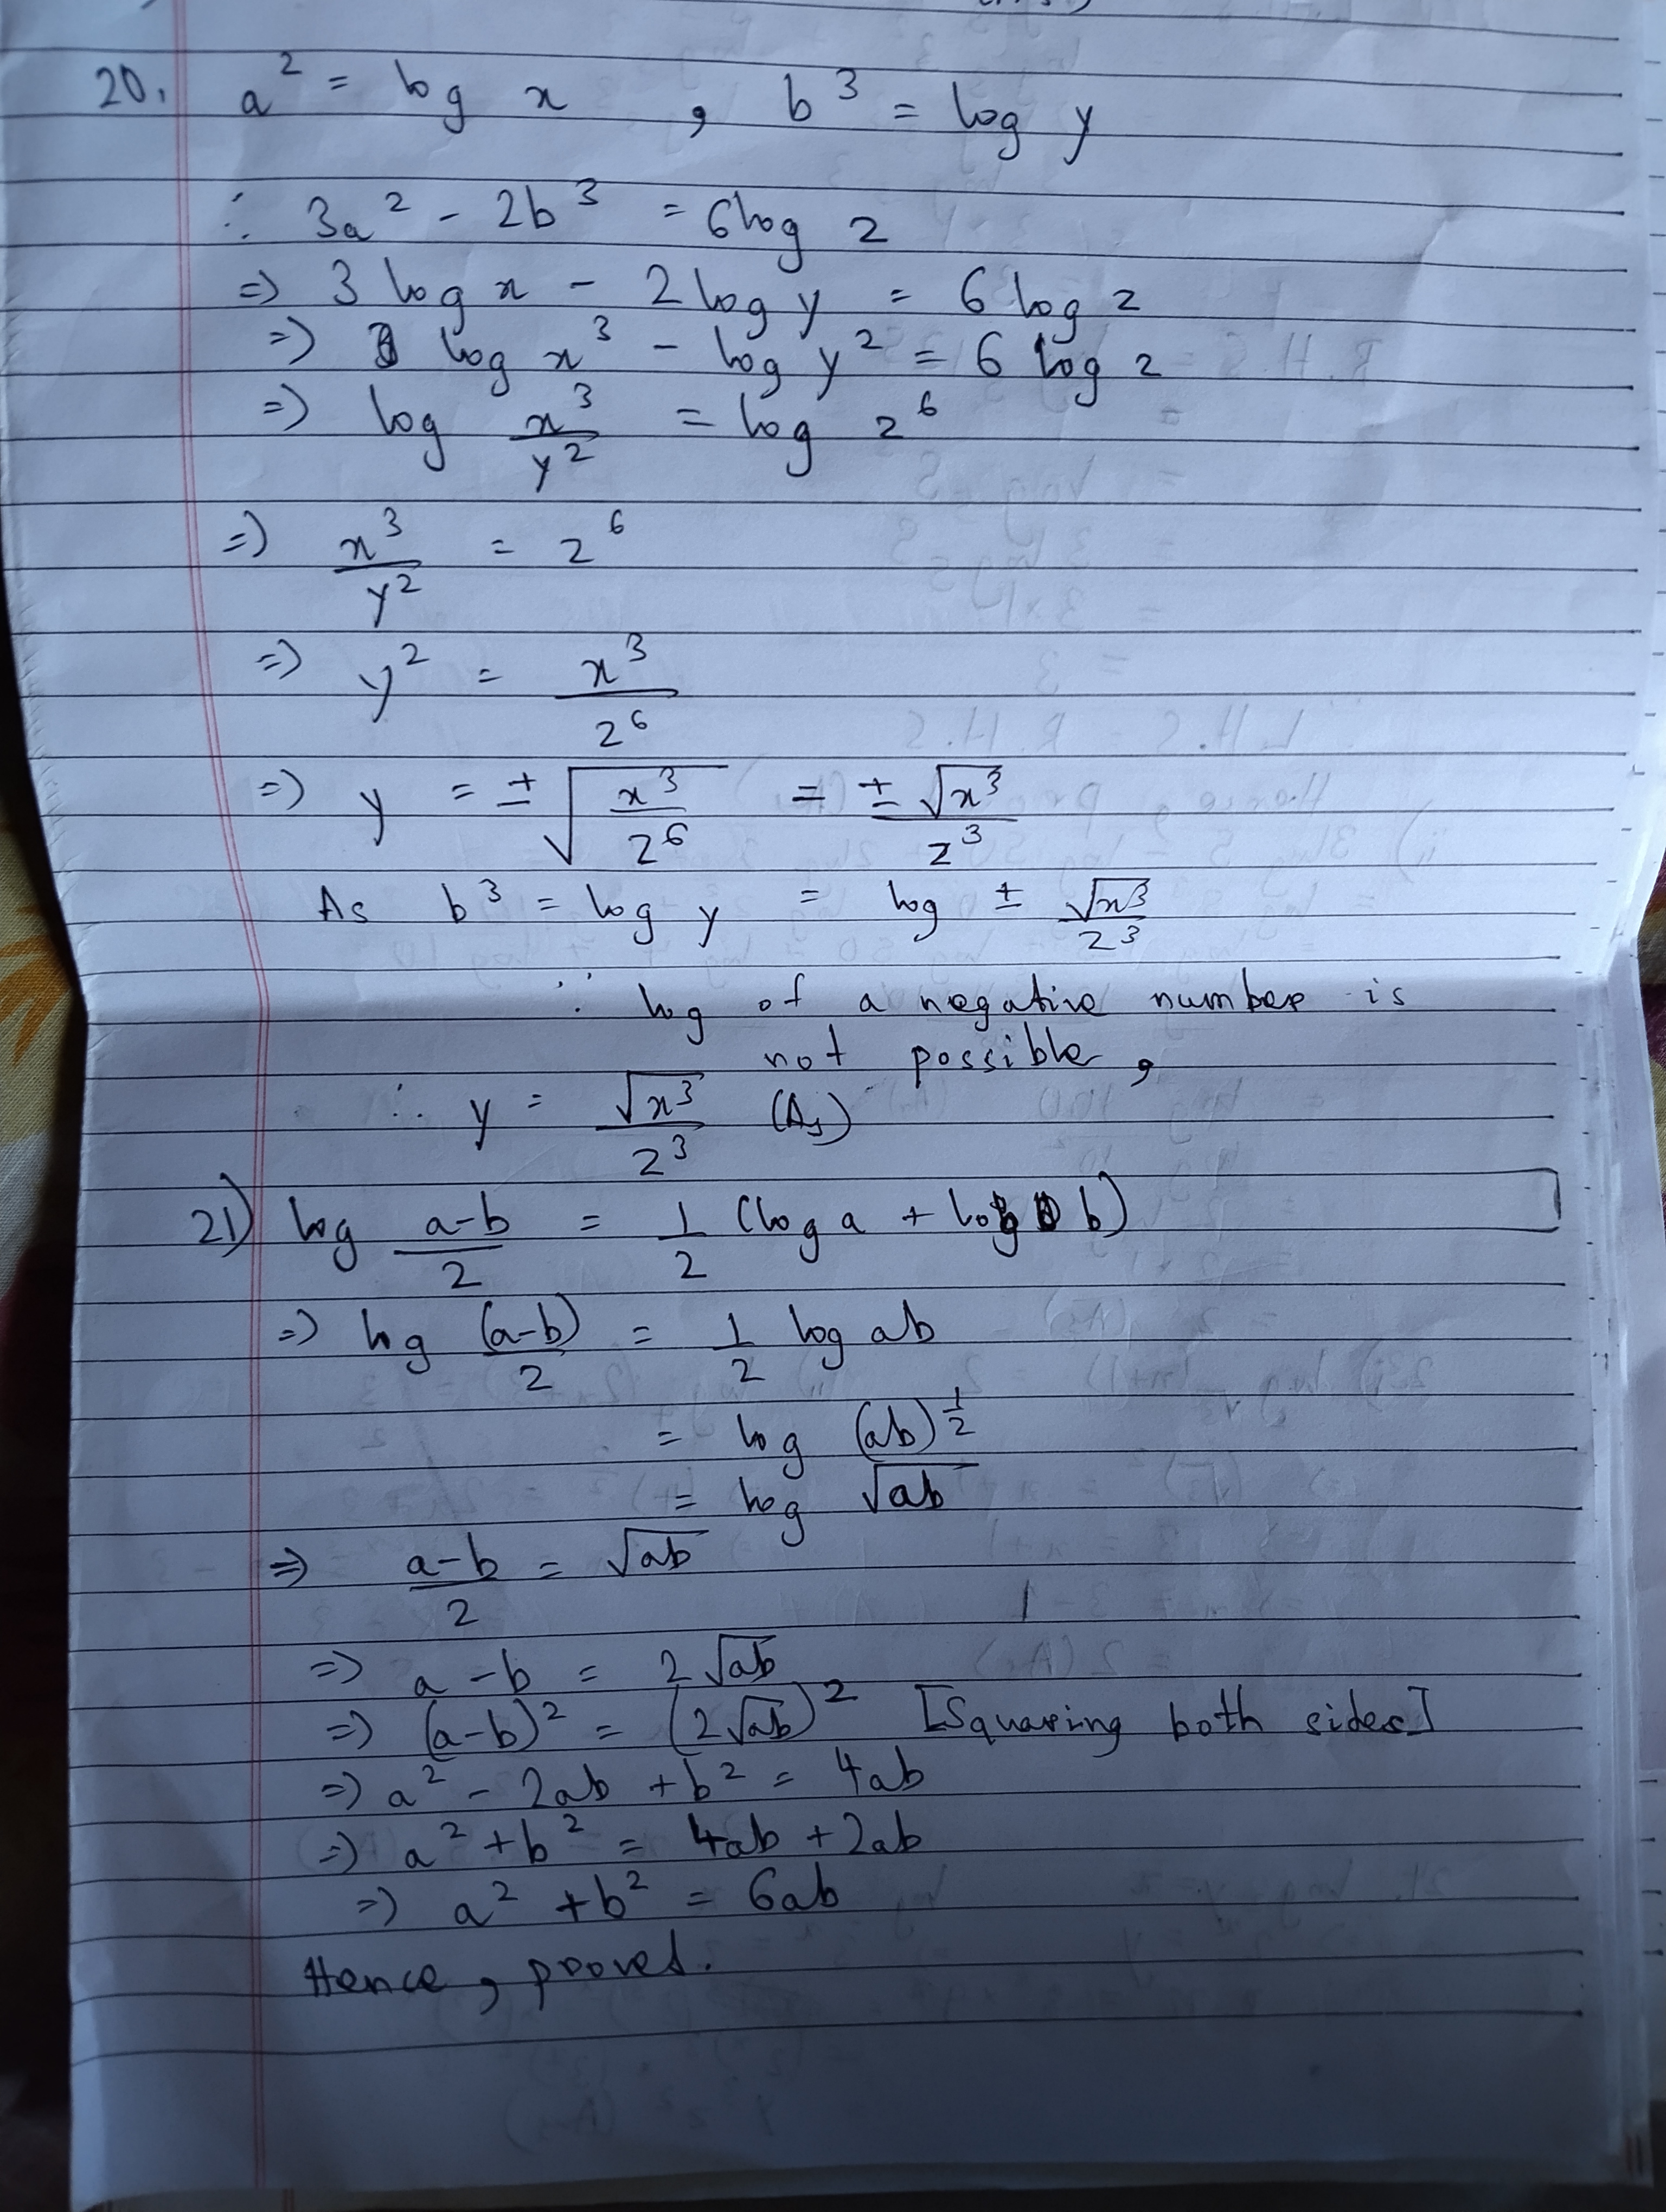 20. a² = log x , b³ = log y
∴ 3a² - 2b³ = 6log z
=> 3 log x - 2 log y = 6 log z
=> log x³ - log y² = 6 log z
=> log x³/y² = log z⁶
=> x³/y² = z⁶
=> y² = x³/z⁶
=> y = ± √(x³/z⁶) = ± √x³/z³
As b³ = log y = log ± √x³/z³
∵ log of a negative number is
not possible,
∴ y = √x³/z³ (As)
21) log a-b/2 = 1/2 (log a + log b)
=> log (a-b)/2 = 1/2 log ab
= log (ab)^1/2
= log √ab
=> a-b/2 = √ab
=> a - b = 2 √ab
=> (a-b)² = (2√ab)² [Squaring both sides]
=> a² - 2ab + b² = 4ab
=> a² + b² = 4ab + 2ab
=> a² + b² = 6ab
Hence, proved.